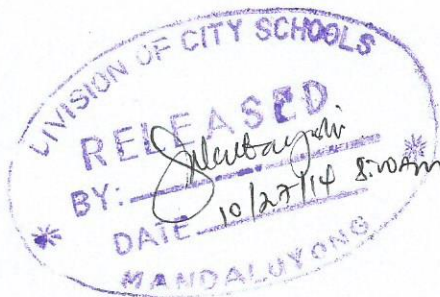 DIVISION OF CITY SCHOOLS
RELEASED
BY:
DATE 10/27/14 8:00AM
MANDALUYONG